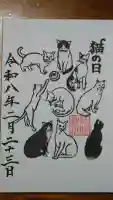 猫の日
令和八年二月二十三日